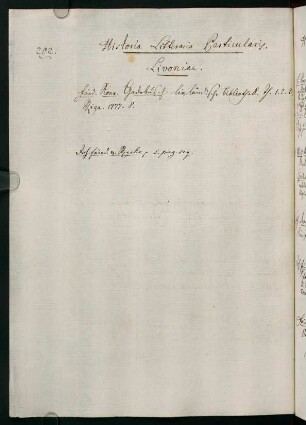 292. Historia Litteraria Particularis.
Livoniae.
Fried. Konr. Gadebusch Livländische Bibliothek. Th. 1. 2. 3.
Riga. 1777. 8.
Joh. Fried. v. Recke, s. pag. seq.